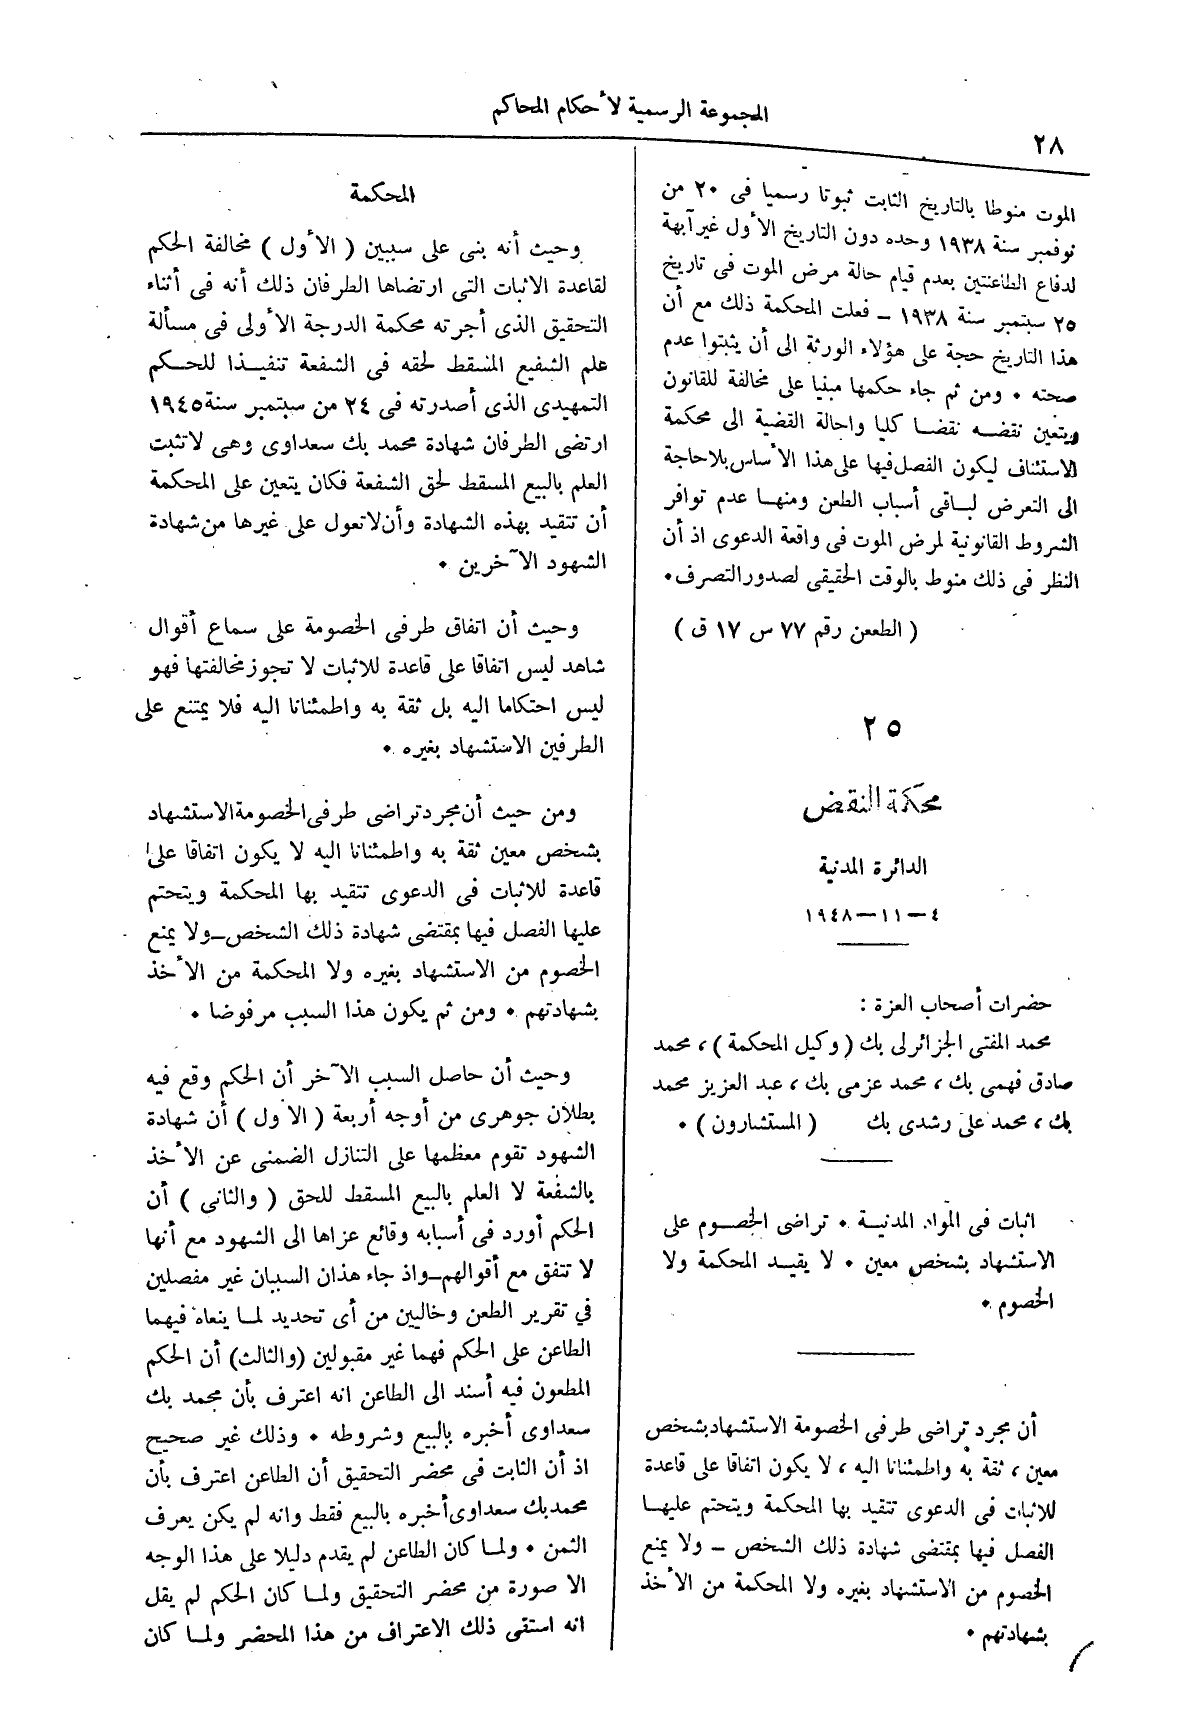 المجموعة الرسمية لأحكام المحاكم
٢٨
الموت منوطا بالتاريخ الثابت ثبوتا رسميا فى ٢٠ من
نوفمبر سنة ١٩٣٨ وحده دون التاريخ الأول غير آبهة
لدفاع الطاعنتين بعدم قيام حالة مرض الموت فى تاريخ
٢٥ سبتمبر سنة ١٩٣٨ – فعلت المحكمة ذلك مع أن
هذا التاريخ حجة على هؤلاء الورثة الى أن يثبتوا عدم
صحته • ومن ثم جاء حكمها مبنيا على مخالفة للقانون
ويتعين نقضه نقضا كليا واحالة القضية الى محكمة
الاستئناف ليكون الفصل فيها على هذا الأساس بلا حاجة
الى التعرض لباقى أسباب الطعن ومنها عدم توافر
الشروط القانونية لمرض الموت فى واقعة الدعوى اذ أن
النظر فى ذلك منوط بالوقت الحقيقى لصدور التصرف •
( الطعن رقم ٧٧ س ١٧ ق )
٢٥
محكمة النقض
الدائرة المدنية
٤ – ١١ – ١٩٤٨
حضرات أصحاب العزة :
محمد المفتى الجزائرلى بك ( وكيل المحكمة ) ، محمد
صادق فهمى بك ، محمد عزمى بك ، عبد العزيز محمد
بك ، محمد على رشدى بك ( المستشارون ) •
اثبات فى المواد المدنية • تراضى الخصوم على
الاستشهاد بشخص معين • لا يقيد المحكمة ولا
الخصوم •
أن مجرد تراضى طرفى الخصومة الاستشهاد بشخص
معين ، ثقة به واطمئنانا اليه ، لا يكون اتفاقا على قاعدة
للاثبات فى الدعوى تتقيد بها المحكمة ويتحتم عليها
الفصل فيها بمقتضى شهادة ذلك الشخص – ولا يمنع
الخصوم من الاستشهاد بغيره ولا المحكمة من الأخذ
بشهادتهم •
المحكمة
وحيث أنه بنى على سببين ( الأول ) مخالفة الحكم
لقاعدة الاثبات التى ارتضاها الطرفان ذلك أنه فى أثناء
التحقيق الذى أجرته محكمة الدرجة الأولى فى مسألة
علم الشفيع المسقط لحقه فى الشفعة تنفيذا للحكم
التمهيدى الذى أصدرته فى ٢٤ من سبتمبر سنة ١٩٤٥
ارتضى الطرفان شهادة محمد بك سعداوى وهى لا تثبت
العلم بالبيع المسقط لحق الشفعة فكان يتعين على المحكمة
أن تتقيد بهذه الشهادة وأن لا تعول على غيرها من شهادة
الشهود الآخرين •
وحيث أن اتفاق طرفى الخصومة على سماع أقوال
شاهد ليس اتفاقا على قاعدة للاثبات لا تجوز مخالفتها فهو
ليس احتكاما اليه بل ثقة به واطمئنانا اليه فلا يمتنع على
الطرفين الاستشهاد بغيره •
ومن حيث أن مجرد تراضى طرفى الخصومة الاستشهاد
بشخص معين ثقة به واطمئنانا اليه لا يكون اتفاقا على
قاعدة للاثبات فى الدعوى تتقيد بها المحكمة ويتحتم
عليها الفصل فيها بمقتضى شهادة ذلك الشخص – ولا يمنع
الخصوم من الاستشهاد بغيره ولا المحكمة من الأخذ
بشهادتهم • ومن ثم يكون هذا السبب مرفوضا •
وحيث أن حاصل السبب الآخر أن الحكم وقع فيه
بطلان جوهرى من أوجه أربعة ( الأول ) أن شهادة
الشهود تقوم معظمها على التنازل الضمنى عن الأخذ
بالشفعة لا العلم بالبيع المسقط للحق ( والثانى ) أن
الحكم أورد فى أسبابه وقائع عزاها الى الشهود مع أنها
لا تتفق مع أقوالهم – واذ جاء هذان السببان غير مفصلين
في تقرير الطعن وخاليين من أى تحديد لما ينعاه فيهما
الطاعن على الحكم فهما غير مقبولين (والثالث) أن الحكم
المطعون فيه أسند الى الطاعن انه اعترف بأن محمد بك
سعداوى أخبره بالبيع وشروطه • وذلك غير صحيح
اذ أن الثابت فى محضر التحقيق أن الطاعن اعترف بأن
محمد بك سعداوى أخبره بالبيع فقط وانه لم يكن يعرف
الثمن • ولما كان الطاعن لم يقدم دليلا على هذا الوجه
الا صورة من محضر التحقيق ولما كان الحكم لم يقل
انه استقى ذلك الاعتراف من هذا المحضر ولما كان